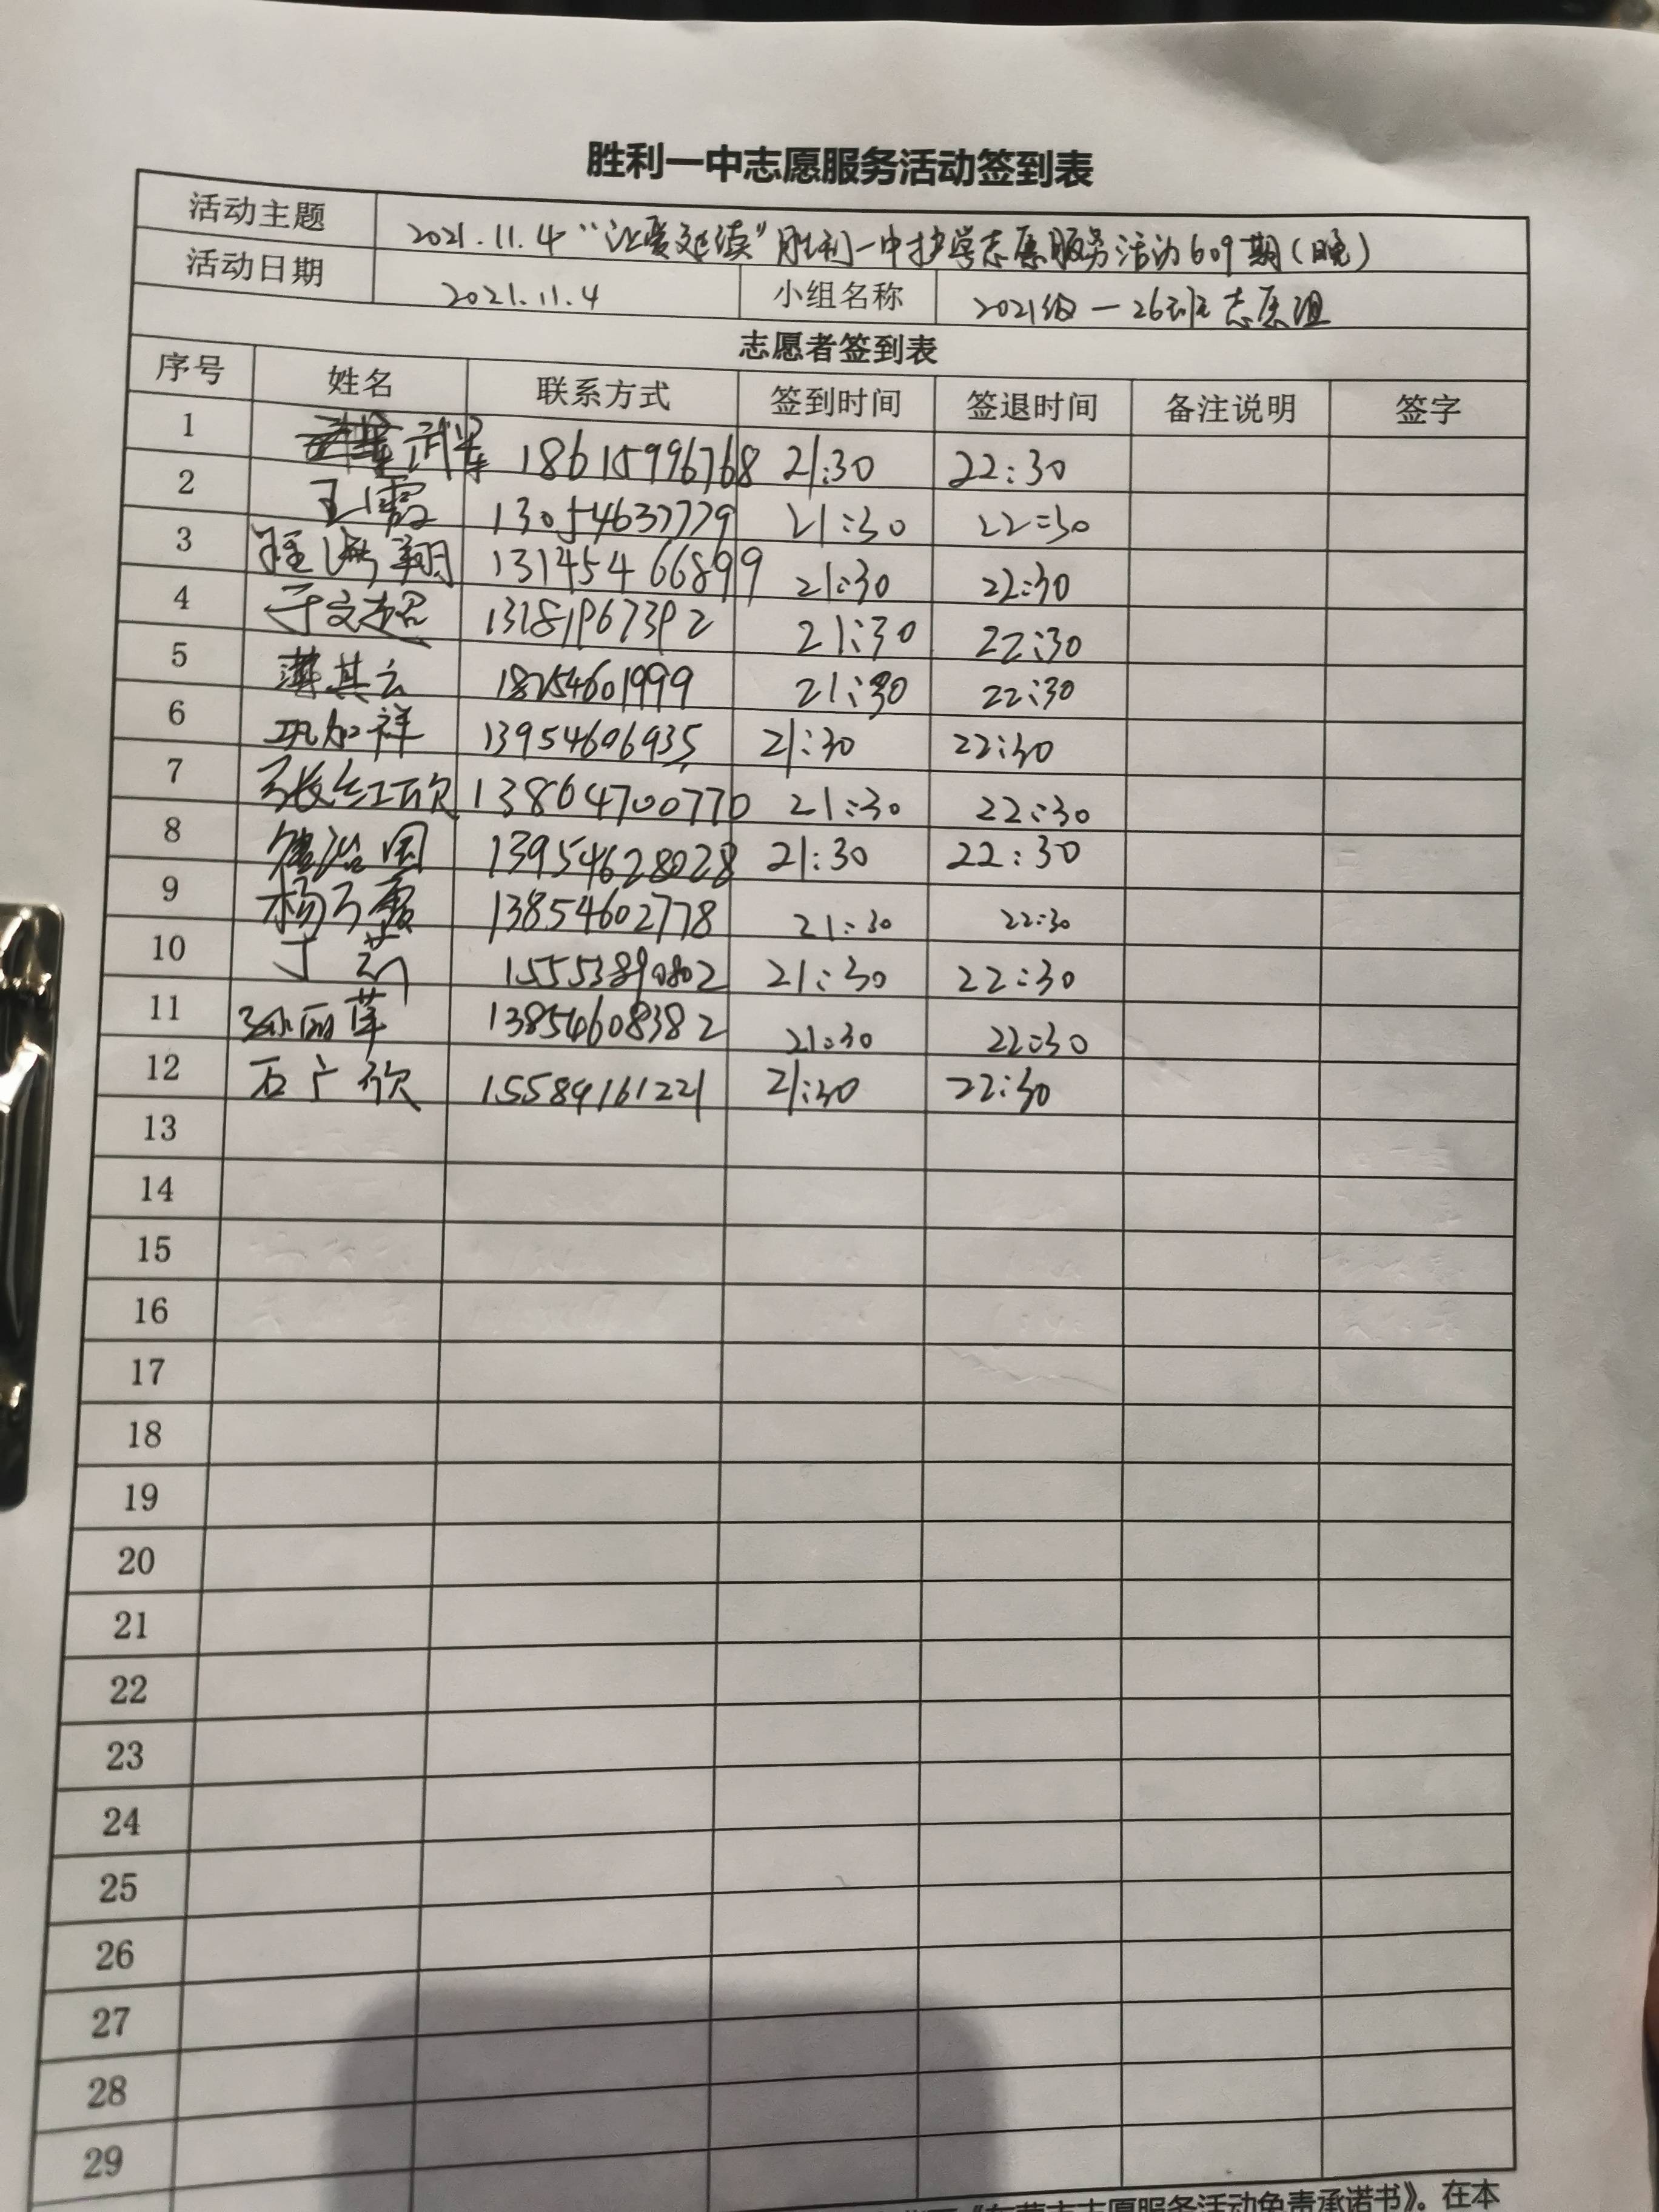 胜利一中志愿服务活动签到表
活动主题 2021.11.4 “让爱延续”胜利一中护学志愿服务活动609期(晚)
活动日期 2021.11.4 小组名称 2021级一26班志愿组
志愿者签到表
序号 姓名 联系方式 签到时间 签退时间 备注说明 签字
1 武军 18615996768 21:30 22:30
2 王霞 13054637779 21:30 22:30
3 13145466899 21:30 22:30
4 于文超 13181967392 21:30 22:30
5 薄其云 18254601999 21:30 22:30
6 巩加祥 13954606935 21:30 22:30
7 张红欣 13864700770 21:30 22:30
8 13954628028 21:30 22:30
9 杨 霞 13854602778 21:30 22:30
10 丁芳 15553890802 21:30 22:30
11 孙丽萍 13854608382 21:30 22:30
12 石广欣 15589161221 21:30 22:30
13
14
15
16
17
18
19
20
21
22
23
24
25
26
27
28
29
志愿服务活动免责承诺书》。在本